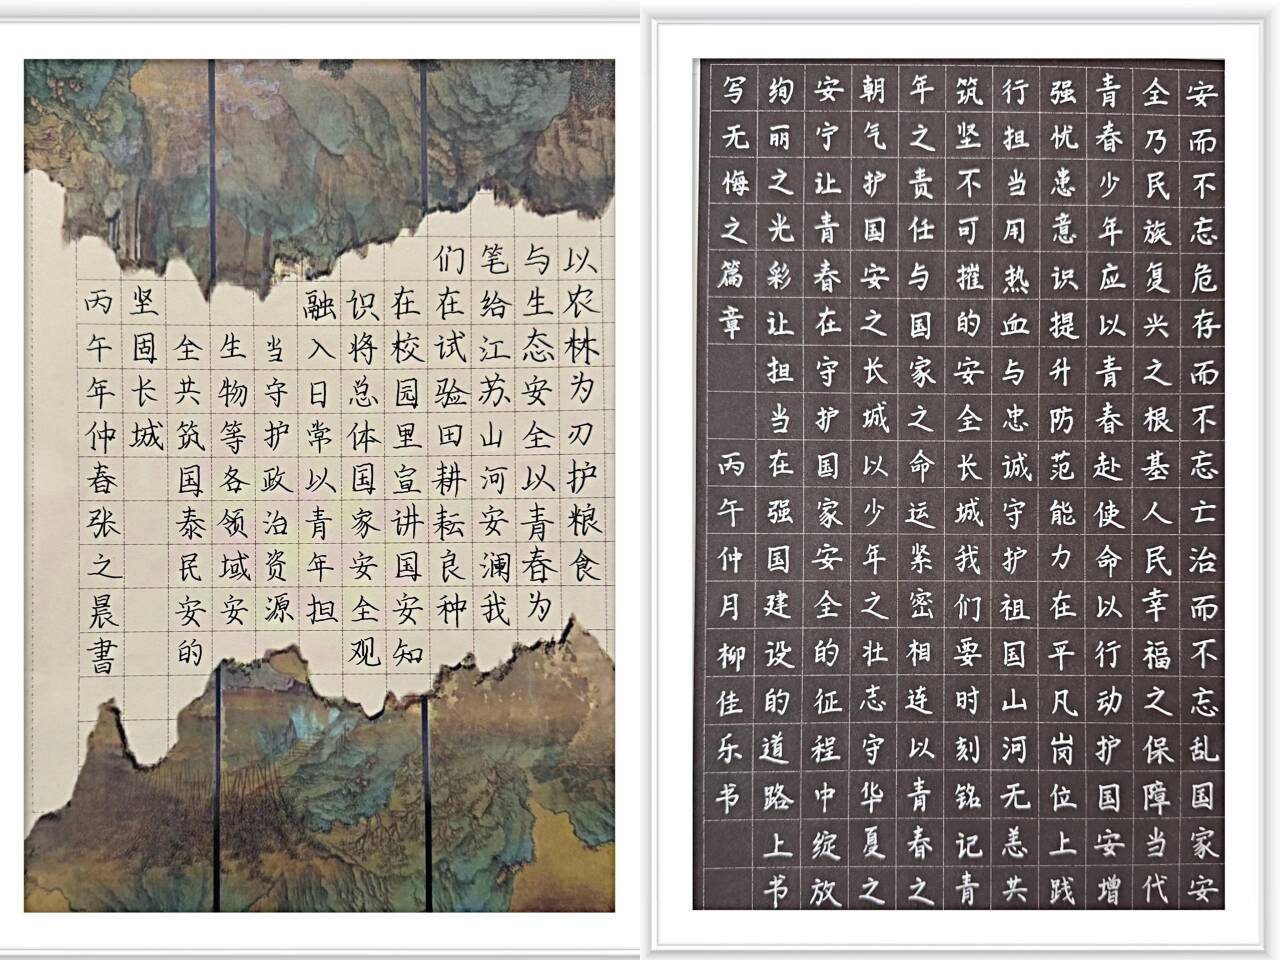 以农林为刃护粮食
与生态安全以青春为
笔给江苏山河安澜我
们在试验田耕耘良种
在校园里宣讲国安知
识将总体国家安全观
融入日常以青年担
当守护政治资源
生物等各领域安
全共筑国泰民安的
坚固长城
丙午年仲春张之晨書
安而不忘危存而不忘亡治而不忘乱国家安
全乃民族复兴之根基人民幸福之保障当代
青春少年应以青春赴使命以行动护国安增
强忧患意识提升防范能力在平凡岗位上践
行担当用热血与忠诚守护祖国山河无恙共
筑坚不可摧的安全长城我们要时刻铭记青
年之责任与国家之命运紧密相连以青春之
朝气护国安之长城以少年之壮志守华夏之
安宁让青春在守护国家安全的征程中绽放
绚丽之光彩让担当在强国建设的道路上书
写无悔之篇章
丙午仲月柳佳乐书